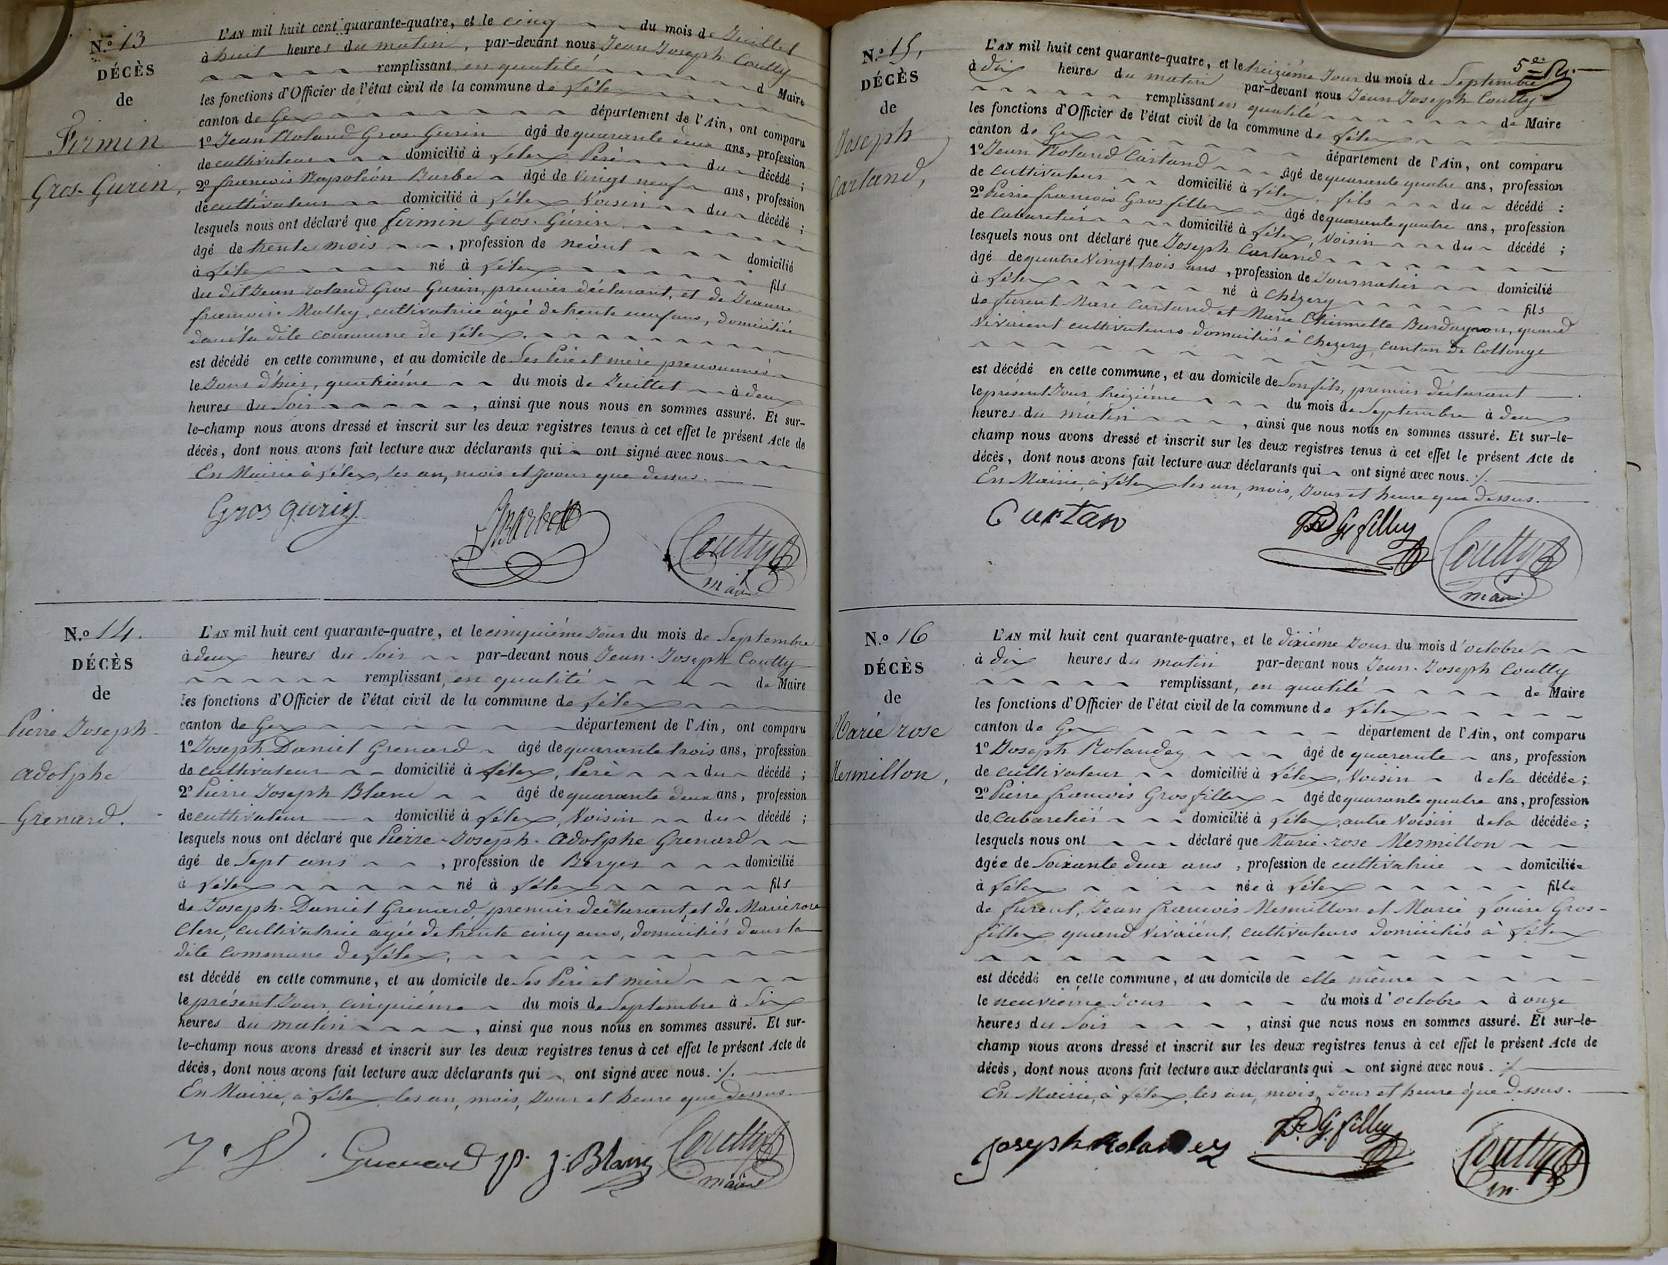 N.º 13
DÉCÈS
de
Firmin
Gros-Gurin,
L'AN mil huit cent quarante-quatre, et le cinq du mois de Juillet
à huit heures du matin, par-devant nous Jean Joseph Coutty
remplissant en qualité de Maire
les fonctions d'Officier de l'état civil de la commune de
canton de Gex département de l'Ain, ont comparu
1º Jean Roland Gros-Gurin âgé de quarante deux ans, profession
de cultivateur domicilié à Père du décédé ;
2º françois Napoléon Barbe âgé de vingt neuf ans, profession
de cultivateur domicilié à Voisin du décédé ;
lesquels nous ont déclaré que firmin Gros-Gurin
âgé de trente mois , profession de néant domicilié
à né à fils
du dit Jean roland Gros Gurin, premier déclarant, et de Jeanne
françoise cultivatrice âgée de trente neuf ans, domiciliée
dans la dite commune de
est décédé en cette commune, et au domicile de Ses Père et mère prenommés
le Jour d'hier, quatrième du mois de Juillet à deux
heures du Soir , ainsi que nous nous en sommes assuré. Et sur-
le-champ nous avons dressé et inscrit sur les deux registres tenus à cet effet le présent Acte de
décès, dont nous avons fait lecture aux déclarants qui ont signé avec nous
En Mairie à les an, mois et jour que dessus.
Gros gurin
Coutty
maire
N.º 14.
DÉCÈS
de
Pierre Joseph
adolphe
Grenard.
L'AN mil huit cent quarante-quatre, et le cinquième Jour du mois de Septembre
à deux heures du Soir par-devant nous Jean-Joseph Coutty
remplissant, en qualité de Maire
les fonctions d'Officier de l'état civil de la commune de
canton de Gex département de l'Ain, ont comparu
1º Joseph Daniel Grenard âgé de quarante trois ans, profession
de cultivateur domicilié à Père du décédé ;
2º Pierre Joseph Blanc âgé de quarante deux ans, profession
de cultivateur domicilié à Voisin du décédé ;
lesquels nous ont déclaré que Pierre-Joseph-adolphe Grenard
âgé de Sept ans , profession de Berger domicilié
à né à fils
de Joseph-Daniel Grenard premier déclarant, et de Marie rose
cultivatrice agée de trente cinq ans, domiciliés dans la
dite commune de
est décédé en cette commune, et au domicile de Ses Père et mère
le présent Jour cinquième du mois de Septembre à Six
heures du matin , ainsi que nous nous en sommes assuré. Et sur-
le-champ nous avons dressé et inscrit sur les deux registres tenus à cet effet le présent Acte de
décès, dont nous avons fait lecture aux déclarants qui ont signé avec nous.
En Mairie, à les an, mois, Jour et heure que dessus.
J. D. Grenard p. j. Blanc
Coutty
maire
N.º 15,
DÉCÈS
de
Joseph
Cartand,
L'AN mil huit cent quarante-quatre, et le treizième Jour du mois de Septembre
à dix heures du matin par-devant nous Jean-Joseph Coutty
remplissant en qualité de Maire
les fonctions d'Officier de l'état civil de la commune de
canton de Gex département de l'Ain, ont comparu
1º Jean Roland Cartand âgé de quarante quatre ans, profession
de cultivateur domicilié à fils du décédé :
2º Pierre françois Grosfilley âgé de quarante quatre ans, profession
de Cabaretier domicilié à Voisin du décédé ;
lesquels nous ont déclaré que Joseph Cartand
âgé de quatre Vingt trois ans, profession de Journalier domicilié
à né à Chézery fils
de furent Marc Cartand et Marie quand
Vivaient cultivateurs domiciliés à Chezery, canton de Collonge
est décédé en cette commune, et au domicile de Son fils, premier déclarant
le présent Jour treizième du mois de Septembre à deux
heures du matin , ainsi que nous nous en sommes assuré. Et sur-le-
champ nous avons dressé et inscrit sur les deux registres tenus à cet effet le présent Acte de
décès, dont nous avons fait lecture aux déclarants qui ont signé avec nous.
En Mairie, à les an, mois, Jour et heure que dessus.
Cartan
G. filley
Coutty
maire
N.º 16
DÉCÈS
de
Marie rose
Mermillon,
L'AN mil huit cent quarante-quatre, et le dixième Jour du mois d'octobre
à dix heures du matin par-devant nous Jean-Joseph Coutty
remplissant, en qualité de Maire
les fonctions d'Officier de l'état civil de la commune de
canton de Gex département de l'Ain, ont comparu
1º Joseph Rolandez âgé de quarante ans, profession
de cultivateur domicilié à Voisin de la décédée ;
2º Pierre françois Grosfilley âgé de quarante quatre ans, profession
de Cabaretier domicilié à autre Voisin de la décédée ;
lesquels nous ont déclaré que Marie-rose Mermillon
âgée de Soixante deux ans, profession de cultivatrice domiciliée
à née à fille
de furent, Jean françois Mermillon et Marie Louise Gros-
filley quand Vivaient, cultivateurs domiciliés à
est décédé en cette commune, et au domicile de elle même
le neuvième Jour du mois d'octobre à onze
heures du Soir , ainsi que nous nous en sommes assuré. Et sur-le-
champ nous avons dressé et inscrit sur les deux registres tenus à cet effet le présent Acte de
décès, dont nous avons fait lecture aux déclarants qui ont signé avec nous.
En Mairie, à les an, mois, Jour et heure que dessus.
Joseph
G. filley
Coutty
m.